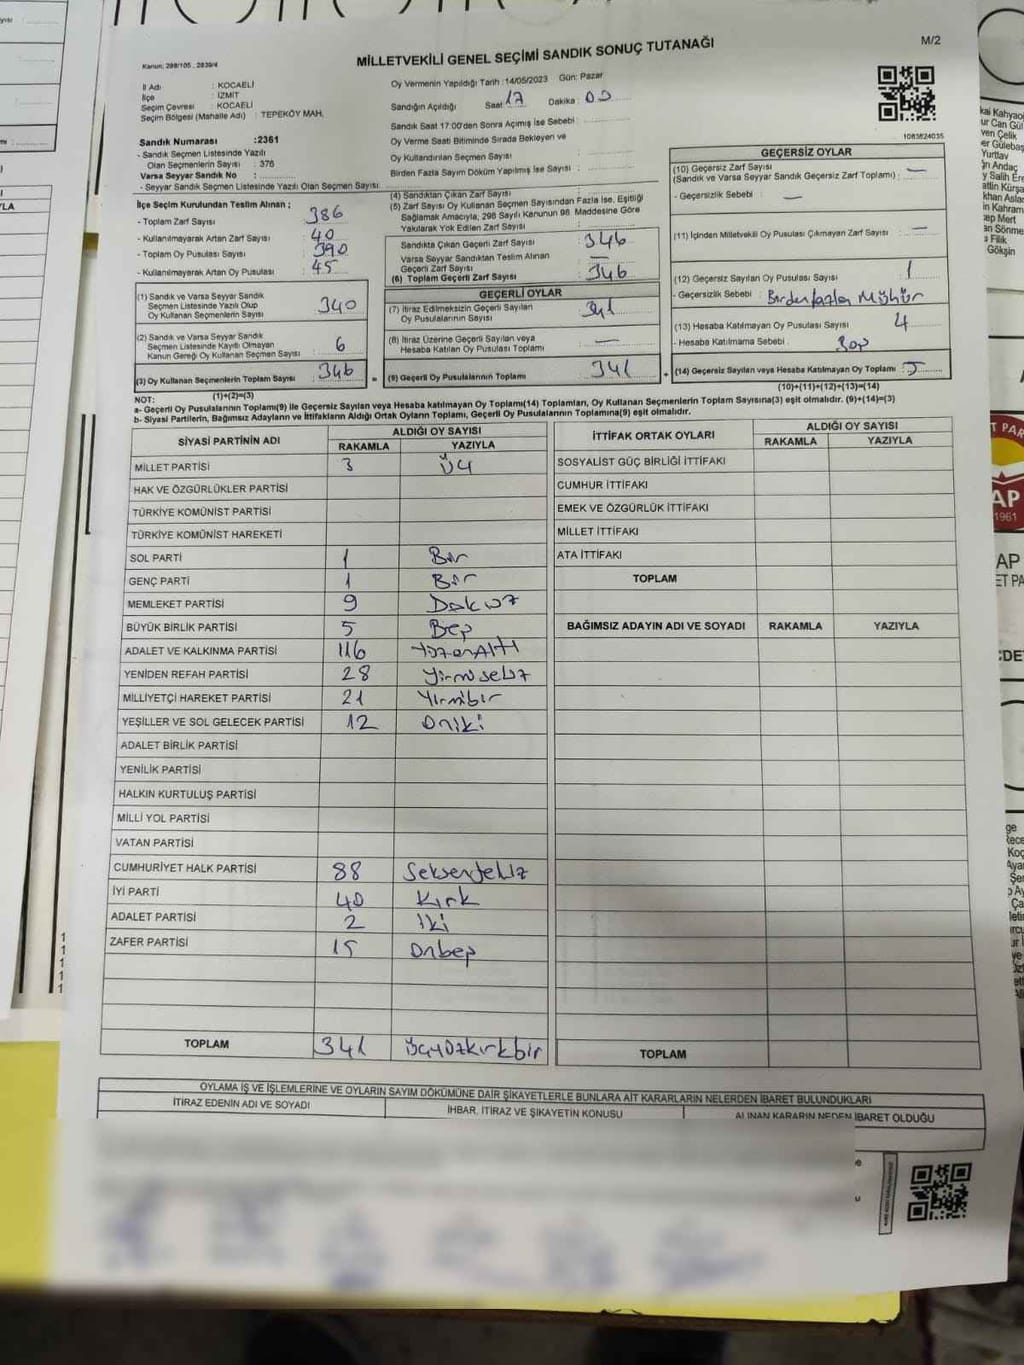 M/2
MİLLETVEKİLİ GENEL SEÇİMİ SANDIK SONUÇ TUTANAĞI
Kanun: 298/105 , 2839/4
İl Adı : KOCAELİ
İlçe : İZMİT
Seçim Çevresi : KOCAELİ
Seçim Bölgesi (Mahalle Adı) : TEPEKÖY MAH.
Sandık Numarası :2361
- Sandık Seçmen Listesinde Yazılı
Olan Seçmenlerin Sayısı : 376
Varsa Seyyar Sandık No :
- Seyyar Sandık Seçmen Listesinde Yazılı Olan Seçmen Sayısı
Oy Vermenin Yapıldığı Tarih :14/05/2023 Gün: Pazar
Sandığın Açıldığı Saat 17 Dakika : 00
Sandık Saat 17:00'den Sonra Açımış İse Sebebi :
Oy Verme Saati Bitiminde Sırada Bekleyen ve
Oy Kullandırılan Seçmen Sayısı :
Birden Fazla Sayım Döküm Yapılmış İse Sayısı :
1083824035
İlçe Seçim Kurulundan Teslim Alınan ;
- Toplam Zarf Sayısı 386
- Kullanılmayarak Artan Zarf Sayısı 40
- Toplam Oy Pusulası Sayısı 390
- Kullanılmayarak Artan Oy Pusulası 45
(1) Sandık ve Varsa Seyyar Sandık
Seçmen Listesinde Yazılı Olup
Oy Kullanan Seçmenlerin Sayısı 340
(2) Sandık ve Varsa Seyyar Sandık
Seçmen Listesinde Kayıtlı Olmayan
Kanun Gereği Oy Kullanan Seçmen Sayısı 6
(3) Oy Kullanan Seçmenlerin Toplam Sayısı 346
(1)+(2)=(3)
(4) Sandıktan Çıkan Zarf Sayısı
(5) Zarf Sayısı Oy Kullanan Seçmen Sayısından Fazla İse, Eşitliği
Sağlamak Amacıyla, 298 Sayılı Kanunun 98. Maddesine Göre
Yakılarak Yok Edilen Zarf Sayısı :
Sandıkta Çıkan Geçerli Zarf Sayısı 346
Varsa Seyyar Sandıktan Teslim Alınan
Geçerli Zarf Sayısı —
(6) Toplam Geçerli Zarf Sayısı 346
GEÇERLİ OYLAR
(7) İtiraz Edilmeksizin Geçerli Sayılan
Oy Pusulalarının Sayısı 341
(8) İtiraz Üzerine Geçerli Sayılan veya
Hesaba Katılan Oy Pusulası Toplamı —
= (9) Geçerli Oy Pusulalarının Toplamı 341
GEÇERSİZ OYLAR
(10) Geçersiz Zarf Sayısı
(Sandık ve Varsa Seyyar Sandık Geçersiz Zarf Toplamı) : —
- Geçersizlik Sebebi : —
(11) İçinden Milletvekili Oy Pusulası Çıkmayan Zarf Sayısı : —
(12) Geçersiz Sayılan Oy Pusulası Sayısı : 1
- Geçersizlik Sebebi : Birden fazla Mühür
(13) Hesaba Katılmayan Oy Pusulası Sayısı : 4
- Hesaba Katılmama Sebebi : Boş
+ (14) Geçersiz Sayılan veya Hesaba Katılmayan Oy Toplamı : 5
(10)+(11)+(12)+(13)=(14)
NOT:
a- Geçerli Oy Pusulaları Toplamı(9) ile Geçersiz Sayılan veya Hesaba katılmayan Oy Toplamı(14) Toplamları, Oy Kullanan Seçmenlerin Toplam Sayısına(3) eşit olmalıdır. (9)+(14)=(3)
b- Siyasi Partilerin, Bağımsız Adayların ve İttifakların Aldığı Ortak Oyların Toplamı, Geçerli Oy Pusulalarının Toplamına(9) eşit olmalıdır.
SİYASİ PARTİNİN ADI
ALDIĞI OY SAYISI
RAKAMLA YAZIYLA
MİLLET PARTİSİ 3 Üç
HAK VE ÖZGÜRLÜKLER PARTİSİ
TÜRKİYE KOMÜNİST PARTİSİ
TÜRKİYE KOMÜNİST HAREKETİ
SOL PARTİ 1 Bir
GENÇ PARTİ 1 Bir
MEMLEKET PARTİSİ 9 Dokuz
BÜYÜK BİRLİK PARTİSİ 5 Beş
ADALET VE KALKINMA PARTİSİ 116 YüzonAltı
YENİDEN REFAH PARTİSİ 28 Yirmisekiz
MİLLİYETÇİ HAREKET PARTİSİ 21 Yirmibir
YEŞİLLER VE SOL GELECEK PARTİSİ 12 Oniki
ADALET BİRLİK PARTİSİ
YENİLİK PARTİSİ
HALKIN KURTULUŞ PARTİSİ
MİLLİ YOL PARTİSİ
VATAN PARTİSİ
CUMHURİYET HALK PARTİSİ 88 Seksensekiz
İYİ PARTİ 40 Kırk
ADALET PARTİSİ 2 İki
ZAFER PARTİSİ 15 Onbeş
TOPLAM 341 Üçyüzkırkbir
İTTİFAK ORTAK OYLARI
ALDIĞI OY SAYISI
RAKAMLA YAZIYLA
SOSYALİST GÜÇ BİRLİĞİ İTTİFAKI
CUMHUR İTTİFAKI
EMEK VE ÖZGÜRLÜK İTTİFAKI
MİLLET İTTİFAKI
ATA İTTİFAKI
TOPLAM
BAĞIMSIZ ADAYIN ADI VE SOYADI RAKAMLA YAZIYLA
TOPLAM
OYLAMA İŞ VE İŞLEMLERİNE VE OYLARIN SAYIM DÖKÜMÜNE DAİR ŞİKAYETLERLE BUNLARA AİT KARARLARIN NELERDEN İBARET BULUNDUKLARI
İTİRAZ EDENİN ADI VE SOYADI
İHBAR, İTİRAZ VE ŞİKAYETİN KONUSU
ALINAN KARARIN NEDEN İBARET OLDUĞU